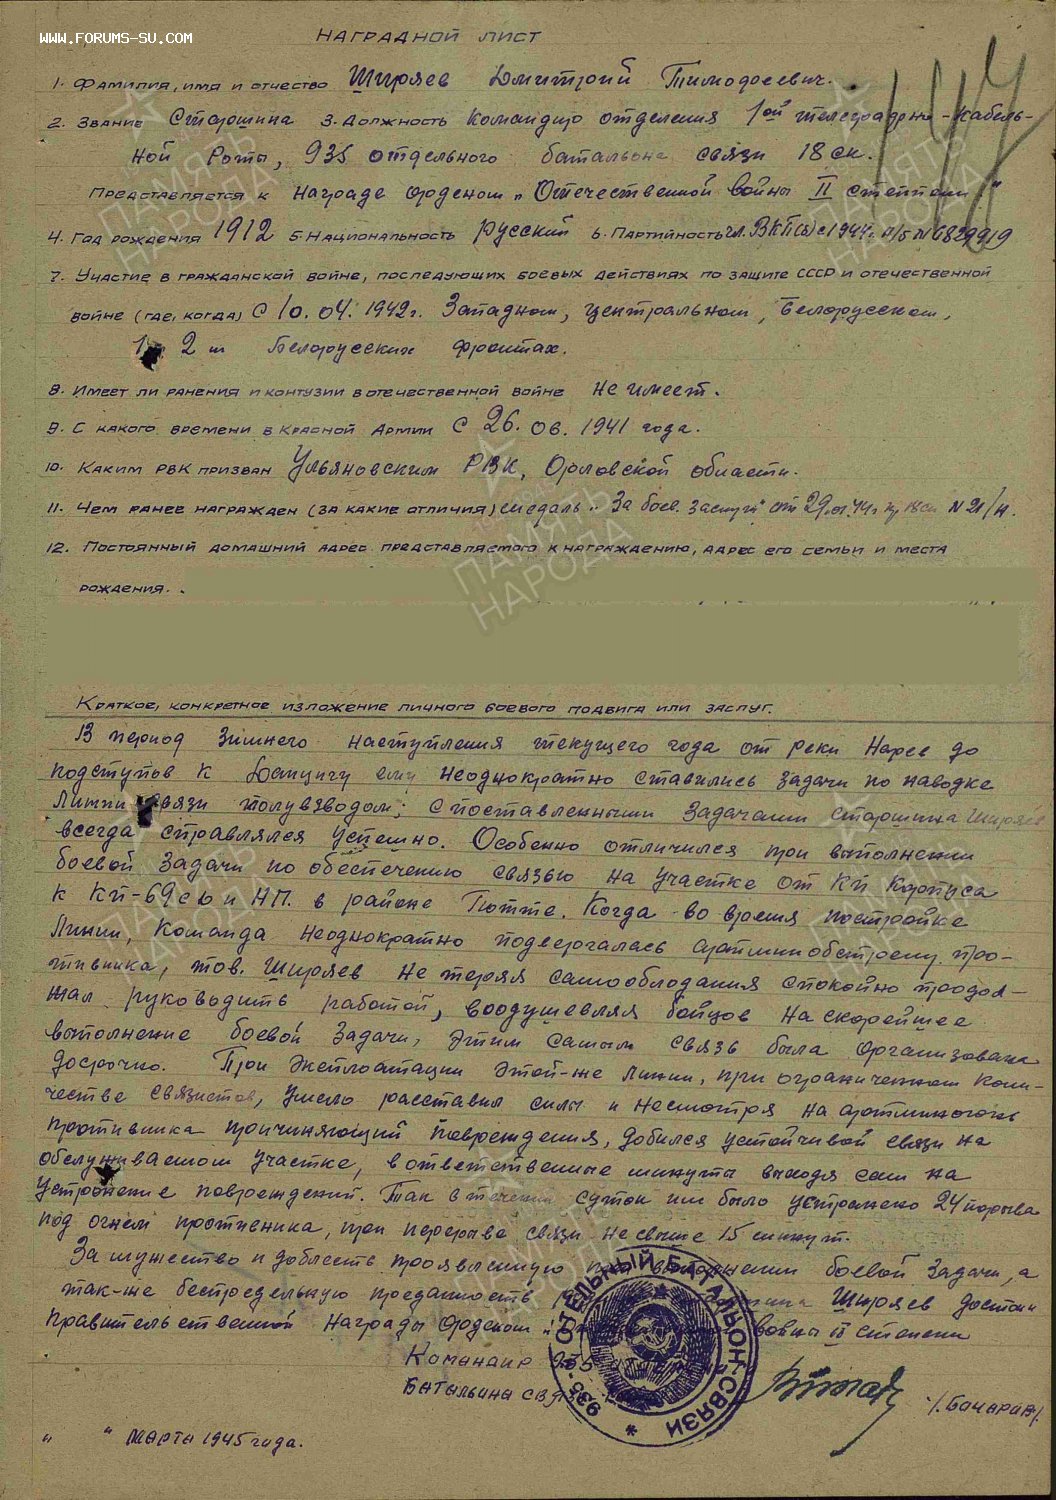 WWW.FORUMS-SU.COM
НАГРАДНОЙ ЛИСТ
1. Фамилия, имя и отчество Ширяев Дмитрий Тимофеевич.
2. Звание Старшина 3. Должность Командир отделения 1ой телеграфно-кабель-
ной роты, 935 отдельного батальона связи 18 ск.
Представляется к награде орденом „Отечественной войны II степени"
4. Год рождения 1912 5 Национальность русский 6. Партийность чл. ВКП(б) с 1944г. п/б № 6829919
7. Участие в гражданской войне, последующих боевых действиях по защите СССР и отечественной
войне (где, когда) С 10.04.1942г. Западном, центральном, Белорусском,
1 2 м Белорусских фронтах.
8. Имеет ли ранения и контузии в отечественной войне не имеет.
9. С какого времени в Красной Армии с 26.06.1941 года.
10. Каким РВК призван Ульяновским РВК, Орловской области.
11. Чем ранее награжден (за какие отличия) медаль „За боев. заслуги" от 29. 44г. 18ск N 21/н.
12. Постоянный домашний адрес представляемого к награждению, адрес его семьи и места
рождения.
Краткое, конкретное изложение личного боевого подвига или заслуг.
В период зимнего наступления текущего года от реки Нарев до
подступов к Данцигу ему неоднократно ставились задачи по наводке
линии связи полувзводом; с поставленными задачами старшина Ширяев
всегда справлялся успешно. Особенно отличился при выполнении
боевой задачи по обеспечению связью на участке от КП Корпуса
к КП-69 сд и НП. в районе Готте. Когда во время постройке
линии, команда неоднократно подвергалась артминобстрелу про-
тивника, тов. Ширяев не теряя самообладания спокойно продол-
жал руководить работой, воодушевляя бойцов на скорейшее
выполнение боевой задачи, этим самым связь была организована
досрочно. При эксплоатации этой-же линии, при ограниченном коли-
честве связистов, умело расставил силы и несмотря на артминогонь
противника причиняющий повреждения, добился устойчивой связи на
обслуживаемом участке, в ответственные минуты выходя сам на
устронение повреждений. Так в течении суток им было устранено 24 порыва
под огнем противника, при перерыве связи не свыше 15 минут.
За мужество и доблесть проявленную при выполнении боевой задачи, а
так-же беспредельную преданность Ширяев достоин
правительственной награды Орденом войны II степени
Командир 935
Батальона связи
935 ОТДЕЛЬНЫЙ БАТАЛЬОН СВЯЗИ
/.Бочаров/.
„ " Марта 1945 года.
ПАМЯТЬ НАРОДА
ПАМЯТЬ НАРОДА
ПАМЯТЬ НАРОДА
ПАМЯТЬ НАРОДА
ПАМЯТЬ НАРОДА
ПАМЯТЬ НАРОДА